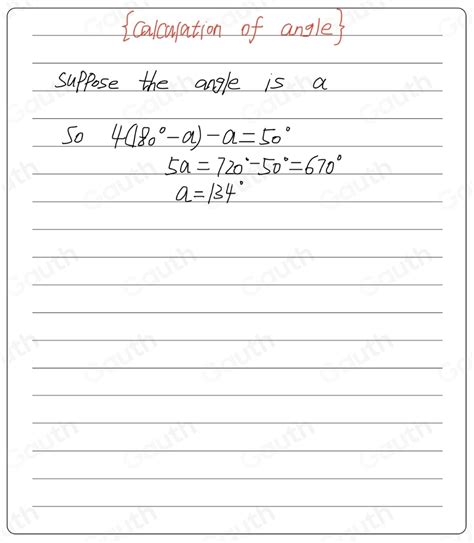 {Calculation of angle}
suppose the angle is a
So 4(180°-a)-a=50°
5a=720°-50°=670°
a=134°